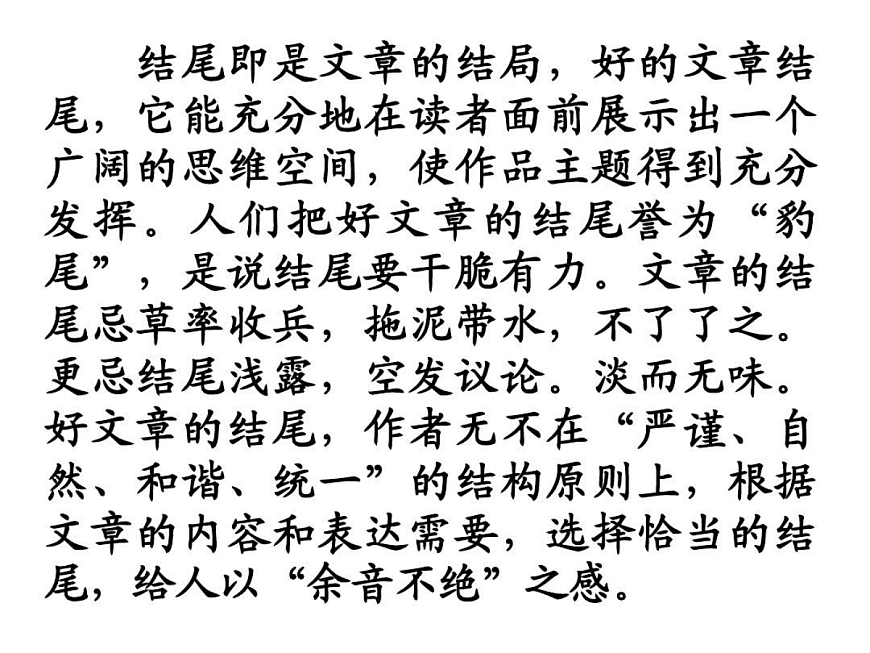 结尾即是文章的结局，好的文章结
尾，它能充分地在读者面前展示出一个
广阔的思维空间，使作品主题得到充分
发挥。人们把好文章的结尾誉为“豹
尾”，是说结尾要干脆有力。文章的结
尾忌草率收兵，拖泥带水，不了了之。
更忌结尾浅露，空发议论。淡而无味。
好文章的结尾，作者无不在“严谨、自
然、和谐、统一”的结构原则上，根据
文章的内容和表达需要，选择恰当的结
尾，给人以“余音不绝”之感。